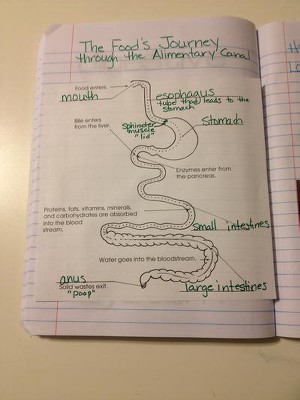 The Food's Journey
through the Alimentary Canal
Food enters.
mouth
esophagus
tube that leads to the
stomach
Bile enters
from the liver.
Sphincter
muscle
"lid"
Stomach
Enzymes enter from
the pancreas.
Proteins, fats, vitamins, minerals,
and carbohydrates are absorbed
into the blood
stream.
small intestines
Water goes into the bloodstream.
anus
Solid wastes exit.
"poop"
large intestines